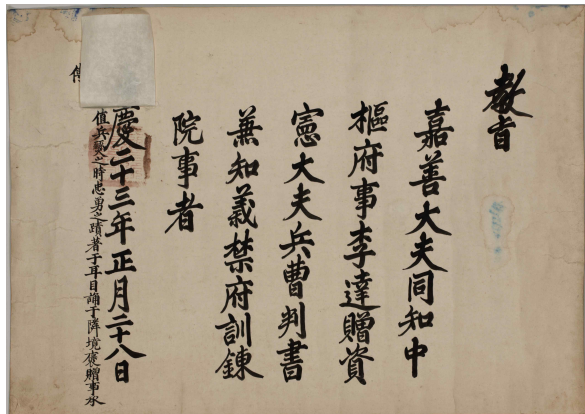 教旨
嘉善大夫同知中
樞府事李達贈資
憲大夫兵曹判書
兼知義禁府訓鍊
院事者
慶二十三年正月二十八日
値兵變之時忠勇之蹟著于耳目誦于隣境褒贈事承
傳